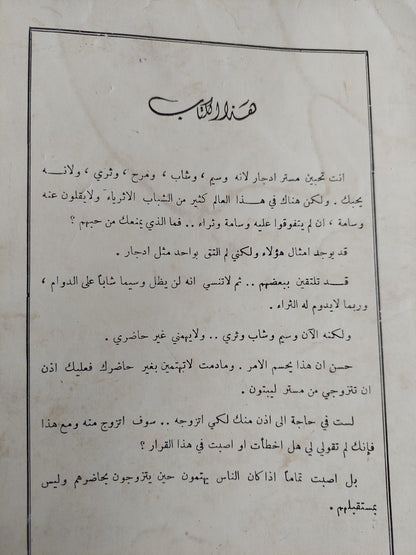 هذا الكتاب
انت تحبين مستر ادجار لانه وسيم ، وشاب ، ومرح ، وثري ، ولانـــه
يحبك . ولكن هناك في هــذا العالم كثير من الشباب الاثرياء ولايقلون عنه
وسامة ، ان لم يتفوقوا عليه وسامة وثراء .. فما الذي يمنعك من حبهم ؟
قد يوجد امثال هؤلاء ولكني لم التق بواحد مثل ادجار .
قــد تلتقين ببعضهم .. ثم لاتنسي انه لن يظل وسيما شابا على الدوام ،
وربما لايدوم له الثراء .
ولكنه الآن وسيم وشاب وثري .. ولايهمني غير حاضري .
حسن ان هذا يحسم الامر . ومادمت لاتهتمين بغير حاضرك فعليك اذن
ان تتزوجي من مستر لينتون .
لست في حاجة الى اذن منك لكي اتزوجه .. سوف اتزوج منه ومع هذا
فإنك لم تقولي لي هل اخطأت او اصبت في هذا القرار ؟
بل اصبت تماما اذا كان الناس يهتمون حين يتزوجون بحاضرهم وليس
بمستقبلهم .